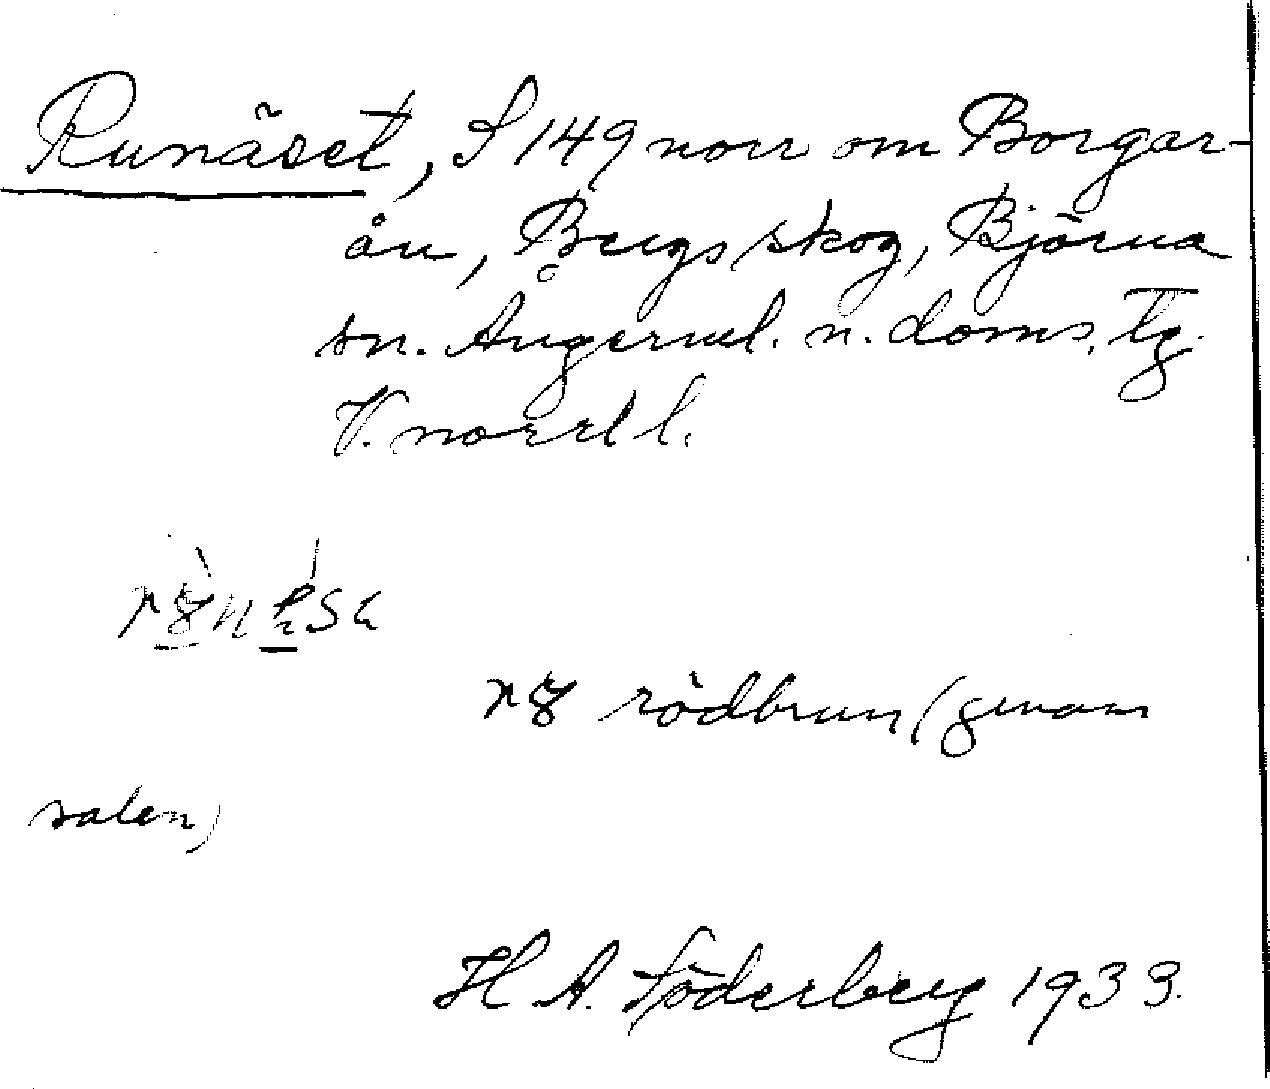 Runäset, S 149 norr om Borgar-
ån, Bergs skog, Björna
sn. Ångerml. n. doms. tg.
V. norrl l.
rödbrun (genom
salen)
H A. Söderberg 1933.